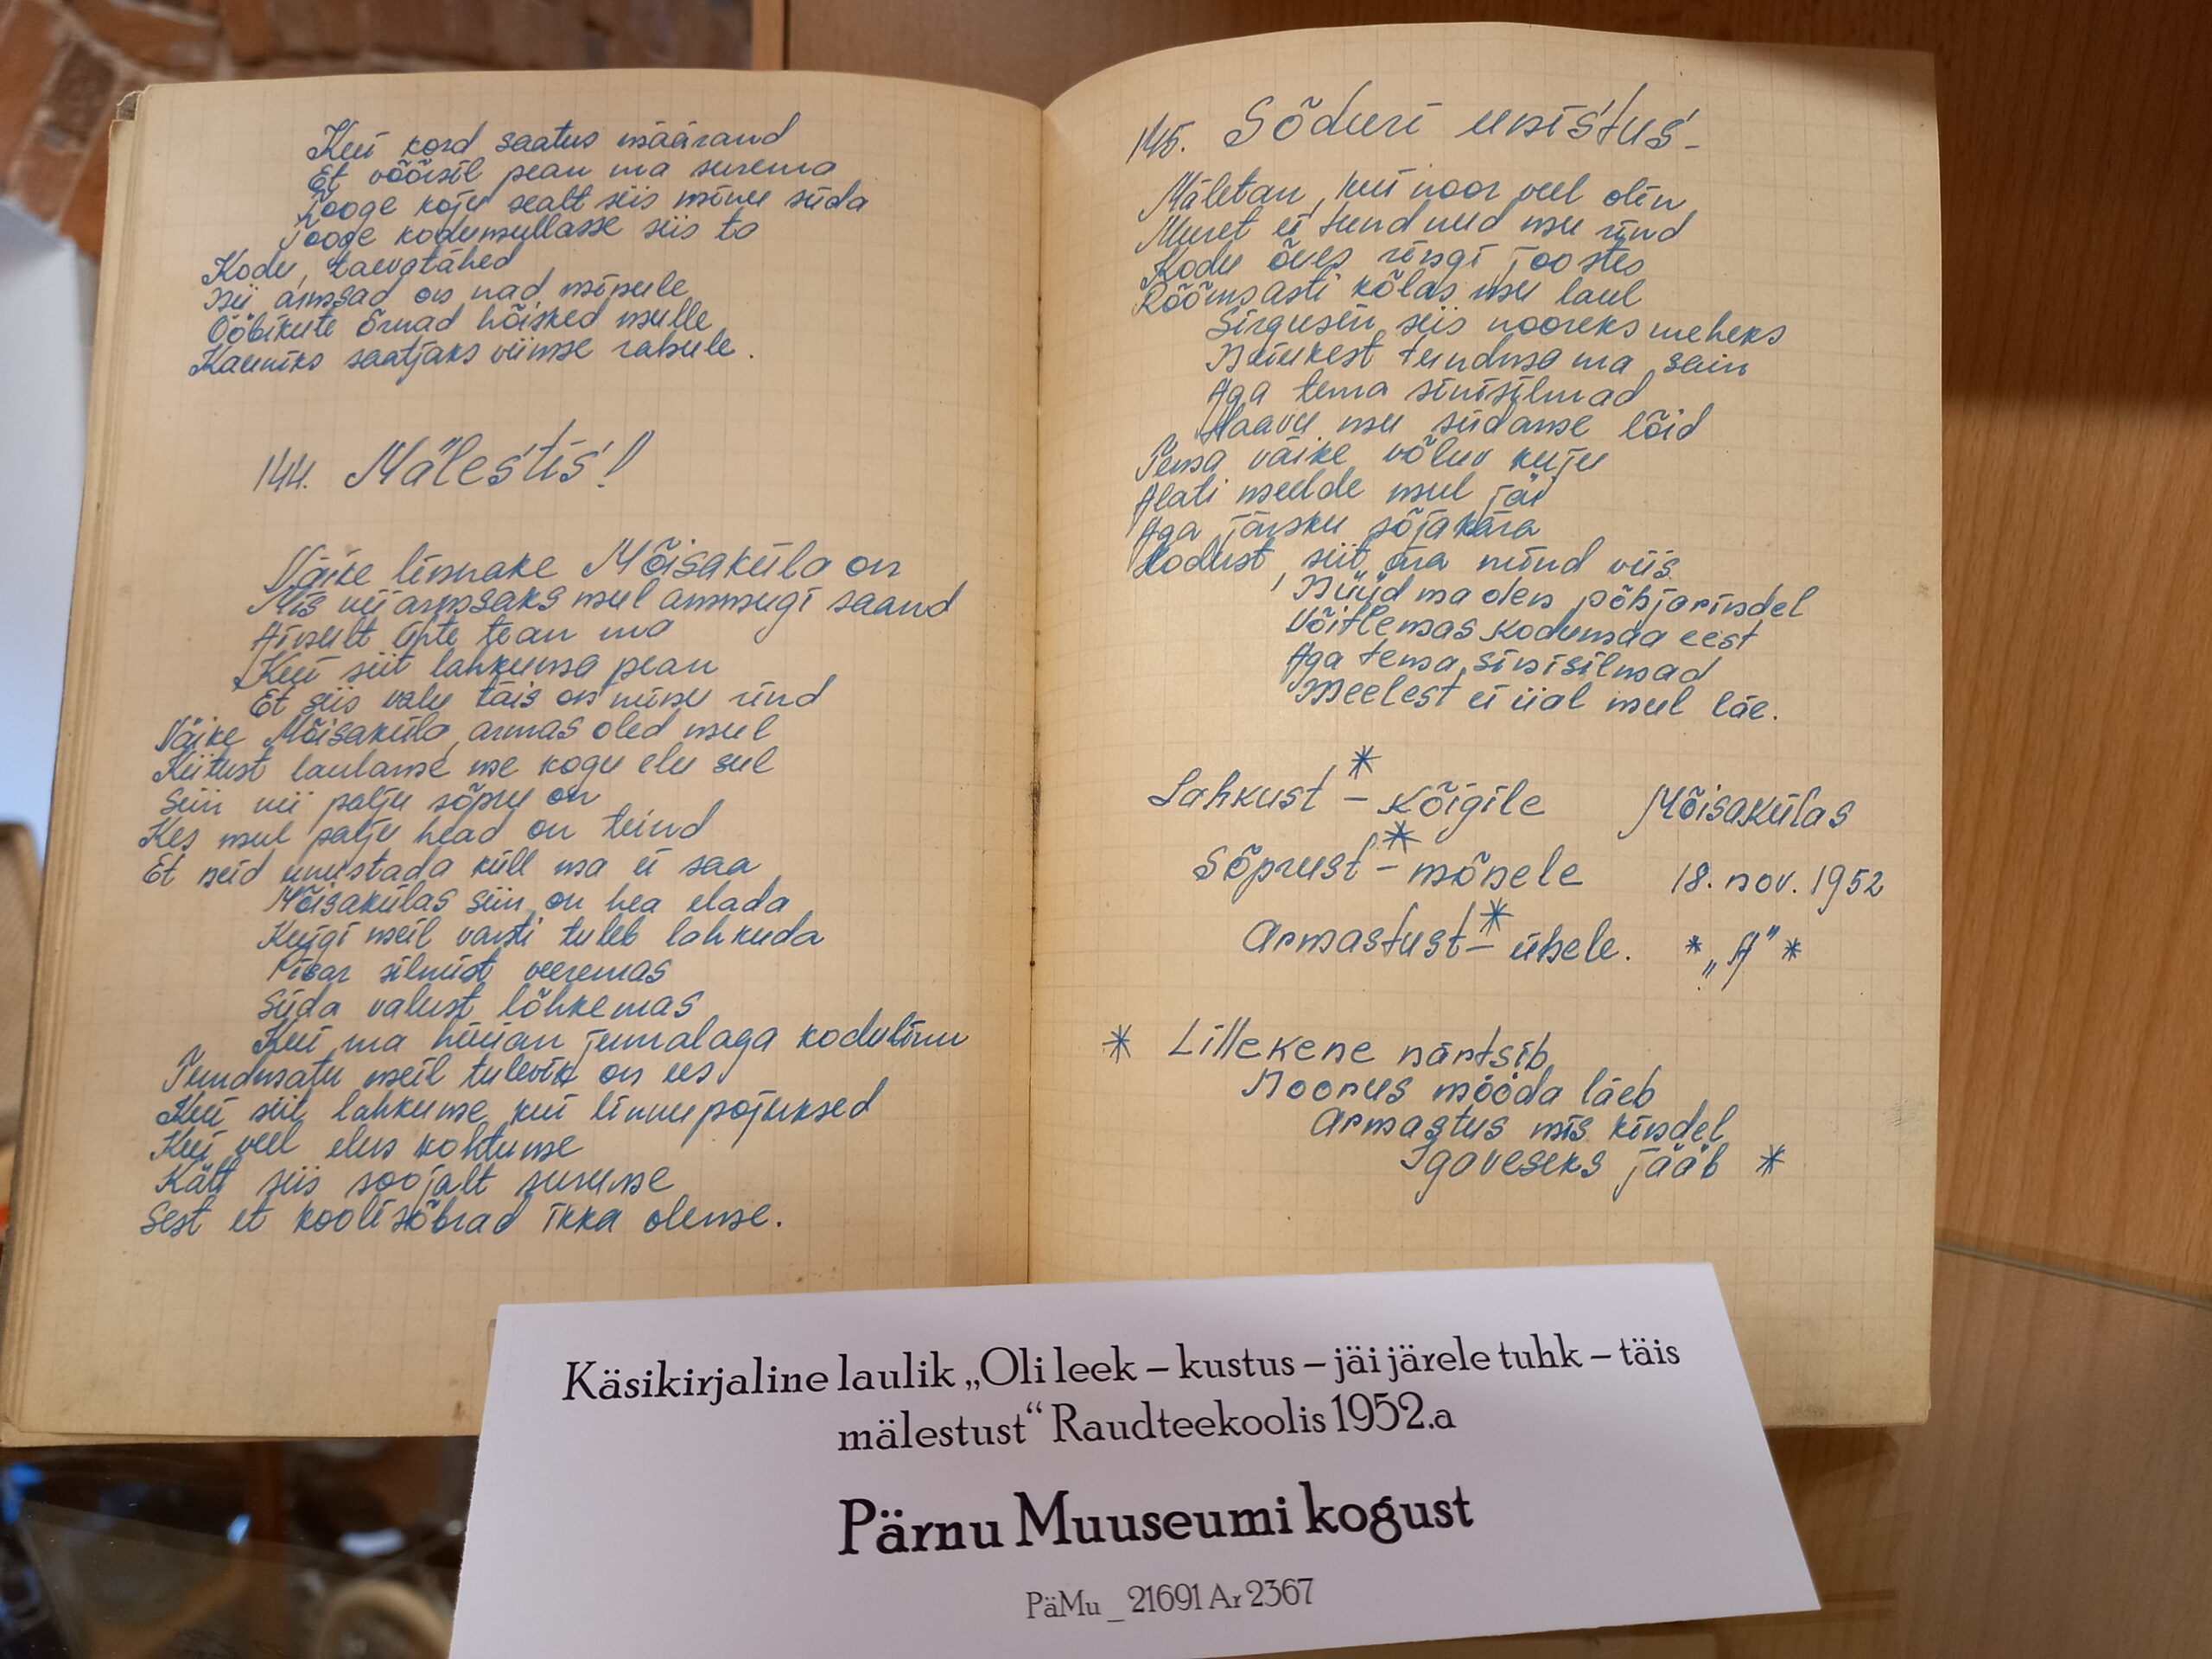 Kui kord saatus määrand
Et võõrsil pean ma surema
Tooge koju sealt siis minu süda
Tooge kodumullasse siis ta
Kodu, taevatähed
Nii armsad on nad minule
Ööbikute õrnad hõisked mulle
Kauniks saatjaks viimse rahule.
144. Mälestis!
Väike linnake Mõisaküla on
Mis nii armsaks mul ammugi saand
Ainult ühte tean ma
Kui siit lahkuma pean
Et siis valu täis on minu rind
Väike Mõisaküla, armas oled mul
Kiitust laulame me kogu elu sul
Siin nii palju sõpru on
Kes mul palju head on teind
Et neid unustada küll ma ei saa
Mõisakülas siin on hea elada
Kuigi meil varsti tuleb lahkuda
Pisar silmist veeremas
Süda valust lõhkemas
Kui ma hüüan jumalaga kodulinn
Tundmatu meil tulevik on ees
Kui siit lahkume kui linnupojuksed
Kui veel elus kohtume
Kätt siis soojalt surume
Sest et koolisõbrad ikka oleme.
145. Sõduri unistus -
Mäletan, kui noor veel olin
Muret ei tundnud mu rind
Kodu õues ringi joostes
Rõõmsasti kõlas mu laul
Sirgusin siis nooreks meheks
Neiukest tundma ma sain
Aga tema sinisilmad
Haavu mu südame lõid
Tema väike võluv kuju
Alati meelde mul jäi
Aga järsku sõjakära
Kodust siit ära mind viis
Nüüd ma olen põhjarindel
Võitlemas kodumaa eest
Aga tema sinisilmad
Meelest ei iial mul läe.
*
Lahkust - kõigile Mõisakülas
*
Sõprust - mõnele 18. nov. 1952
*
Armastust - ühele. * „A” *
* Lillekene närtsib
Noorus mööda läeb
Armastus mis kindel
Igaveseks jääb *
Käsikirjaline laulik „Oli leek – kustus – jäi järele tuhk – täis
mälestust“ Raudteekoolis 1952.a
Pärnu Muuseumi kogust
PäMu _ 21691 Ar 2367